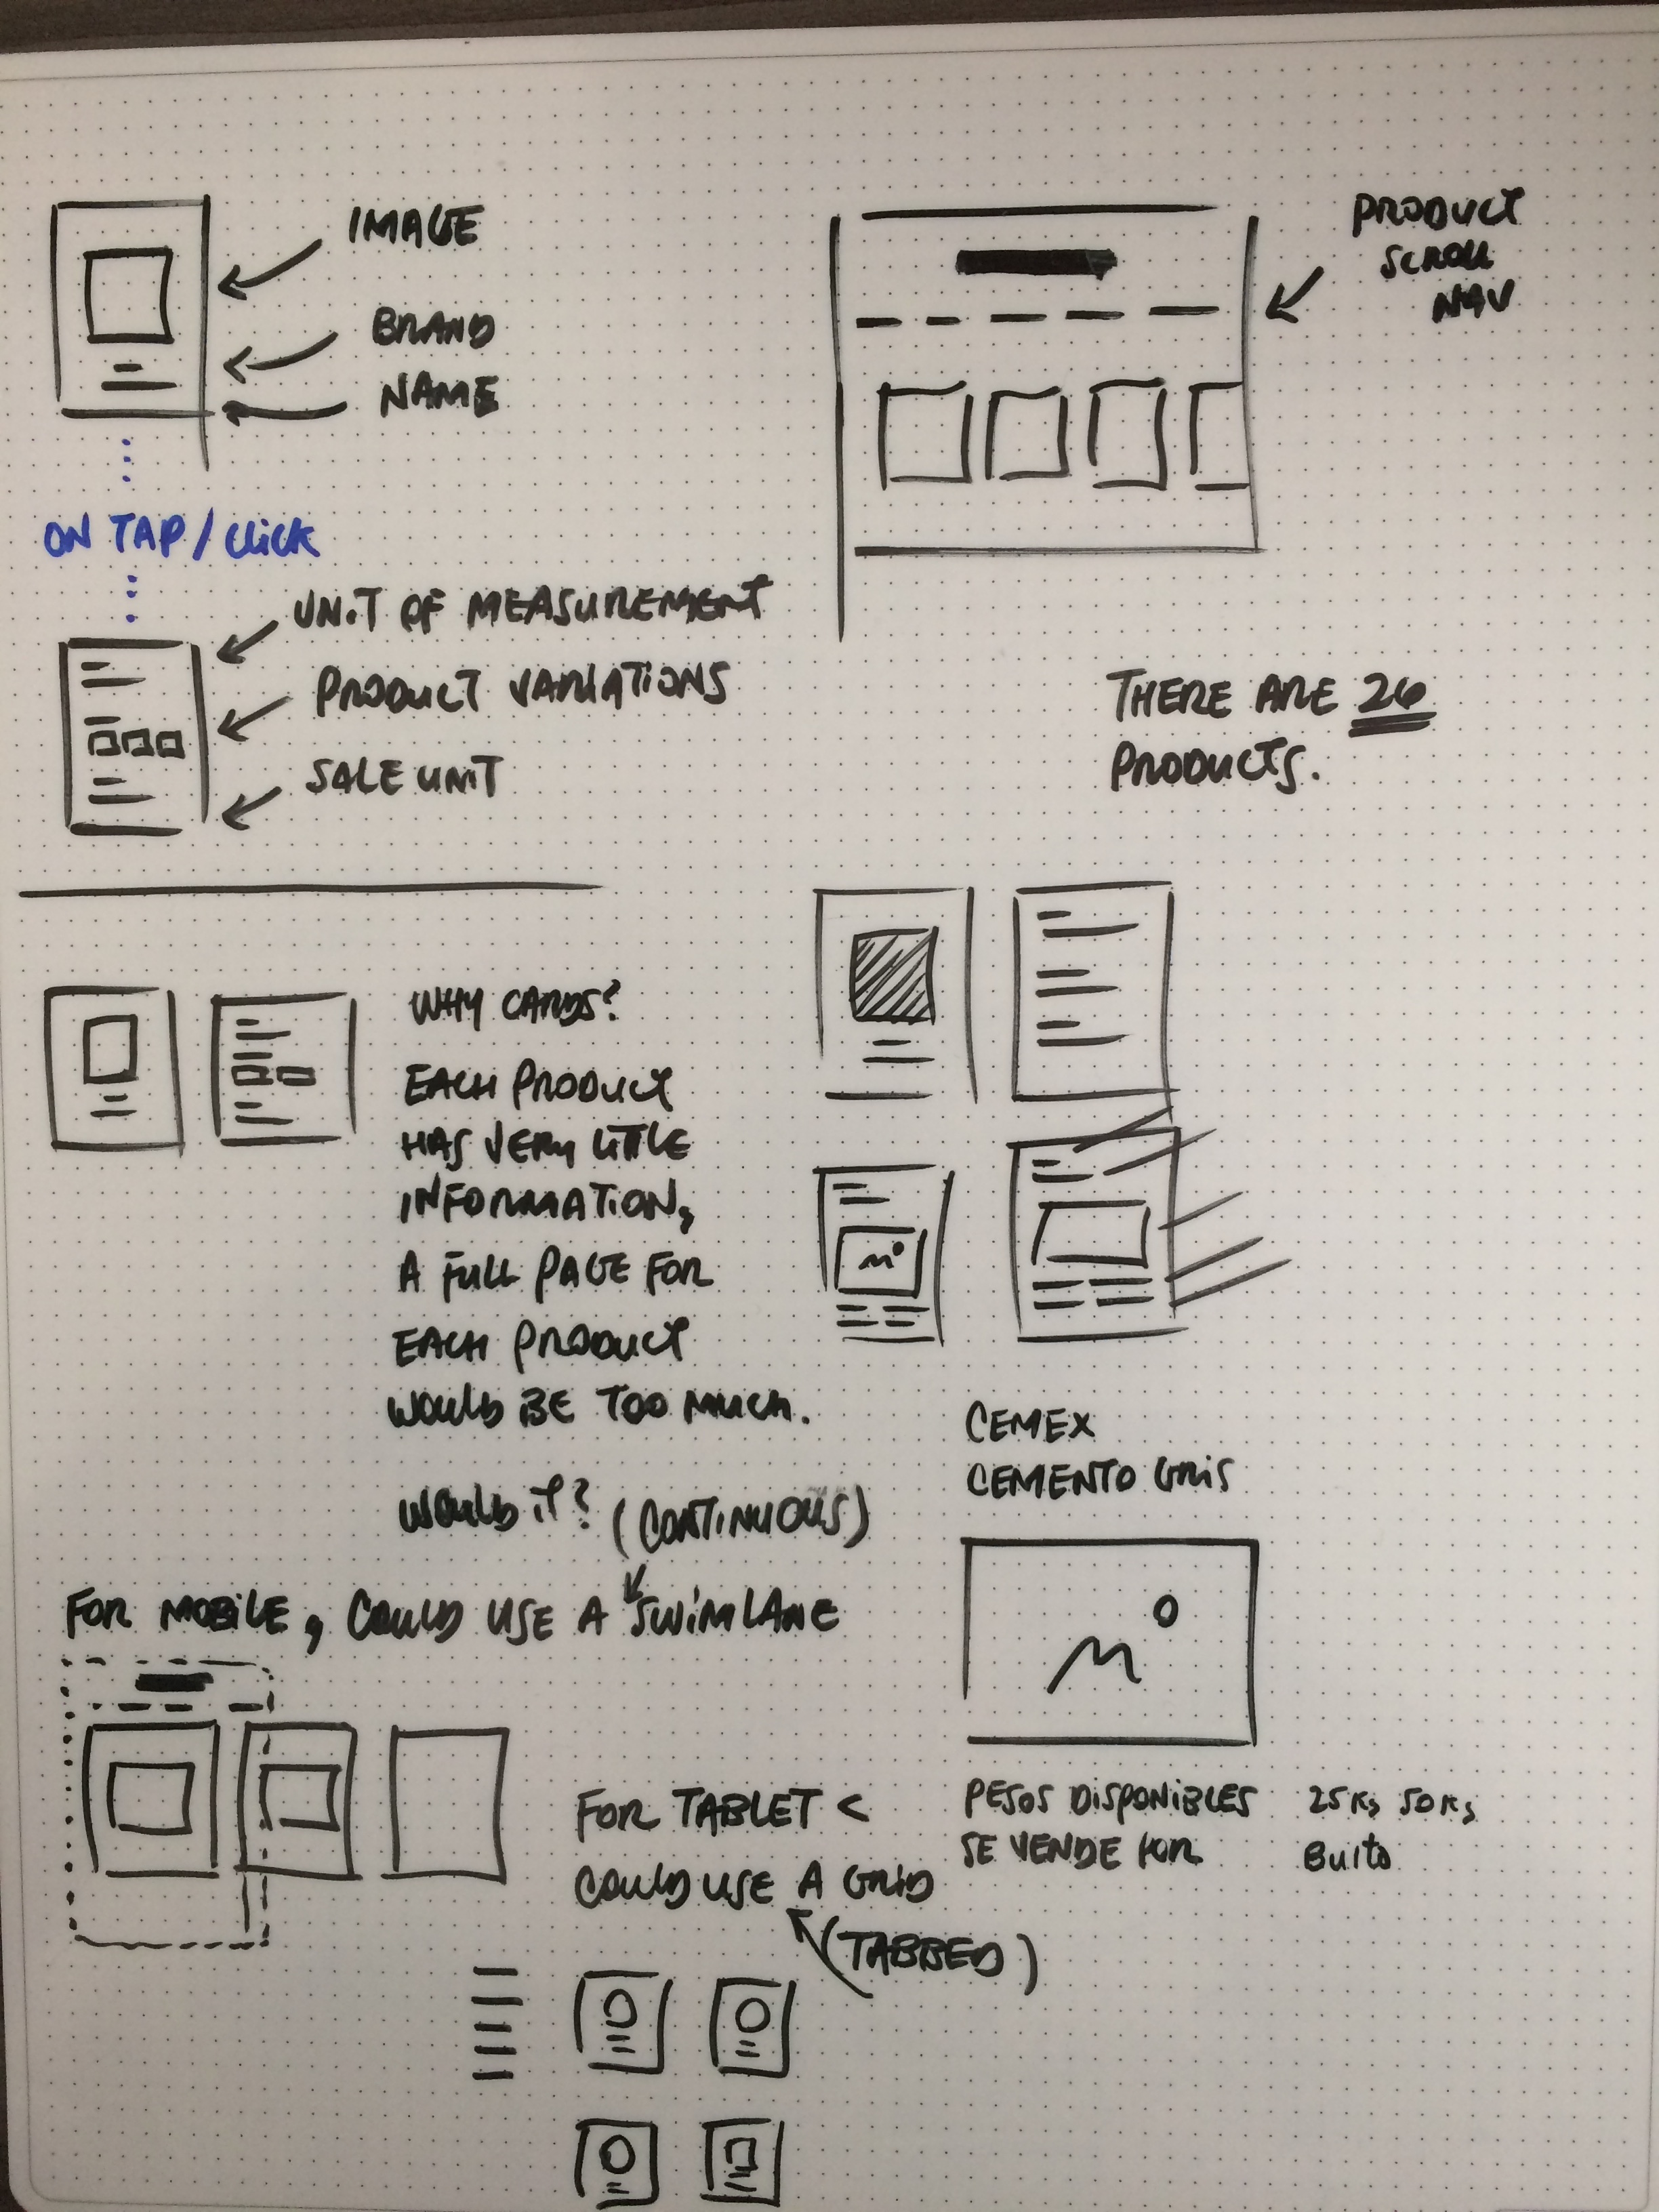 IMAGE
BRAND
NAME
ON TAP / CLICK
UNIT OF MEASUREMENT
PRODUCT VARIATIONS
SALE UNIT
PRODUCT
SCROLL
NAV
THERE ARE 26
PRODUCTS.
WHY CARDS?
EACH PRODUCT
HAS VERY LITTLE
INFORMATION,
A FULL PAGE FOR
EACH PRODUCT
WOULD BE TOO MUCH.
WOULD IT? (CONTINUOUS)
FOR MOBILE, COULD USE A SWIMLANE
CEMEX
CEMENTO GRIS
PESOS DISPONIBLES 25KG 50KG
SE VENDE POR BULTO
FOR TABLET <
COULD USE A GRID
(TABBED)